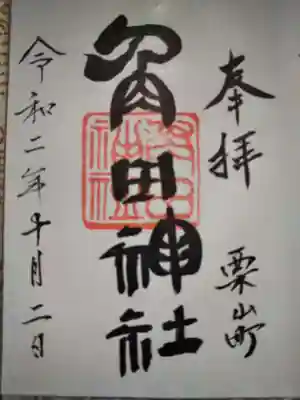 奉拝
栗山町
角田神社
令和二年十月二日